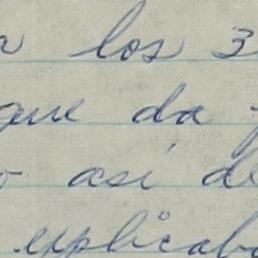 a los 3
que da
o así de
explicab